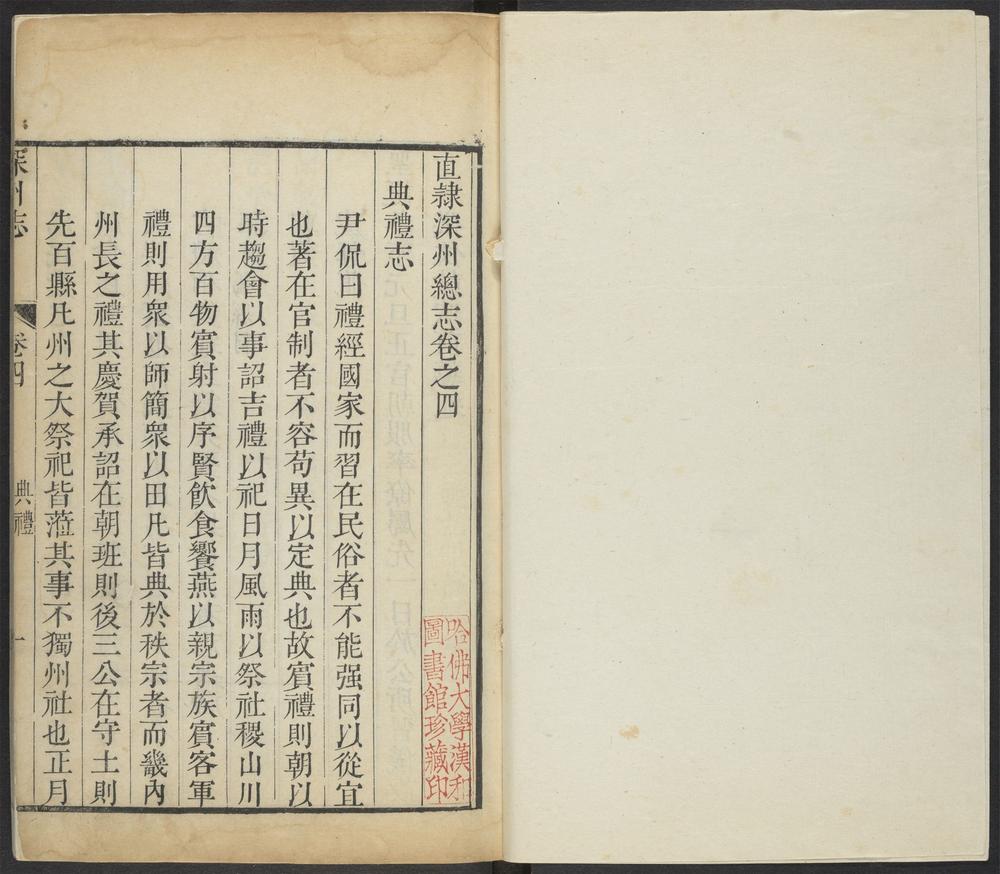 直隷深州總志卷之四
典禮志
尹侃曰禮經國家而習在民俗者不能强同以從宜
也著在官制者不容苟異以定典也故賓禮則朝以
時趨會以事詔吉禮以祀日月風雨以祭社稷山川
四方百物賓射以序賢飲食饗燕以親宗族賓客軍
禮則用衆以師簡衆以田凡皆典於秩宗者而畿內
州長之禮其慶賀承詔在朝班則後三公在守土則
先百縣凡州之大祭祀皆蒞其事不獨州社也正月
深州志
卷四
典禮
一
哈佛大學漢和
圖書館珍藏印